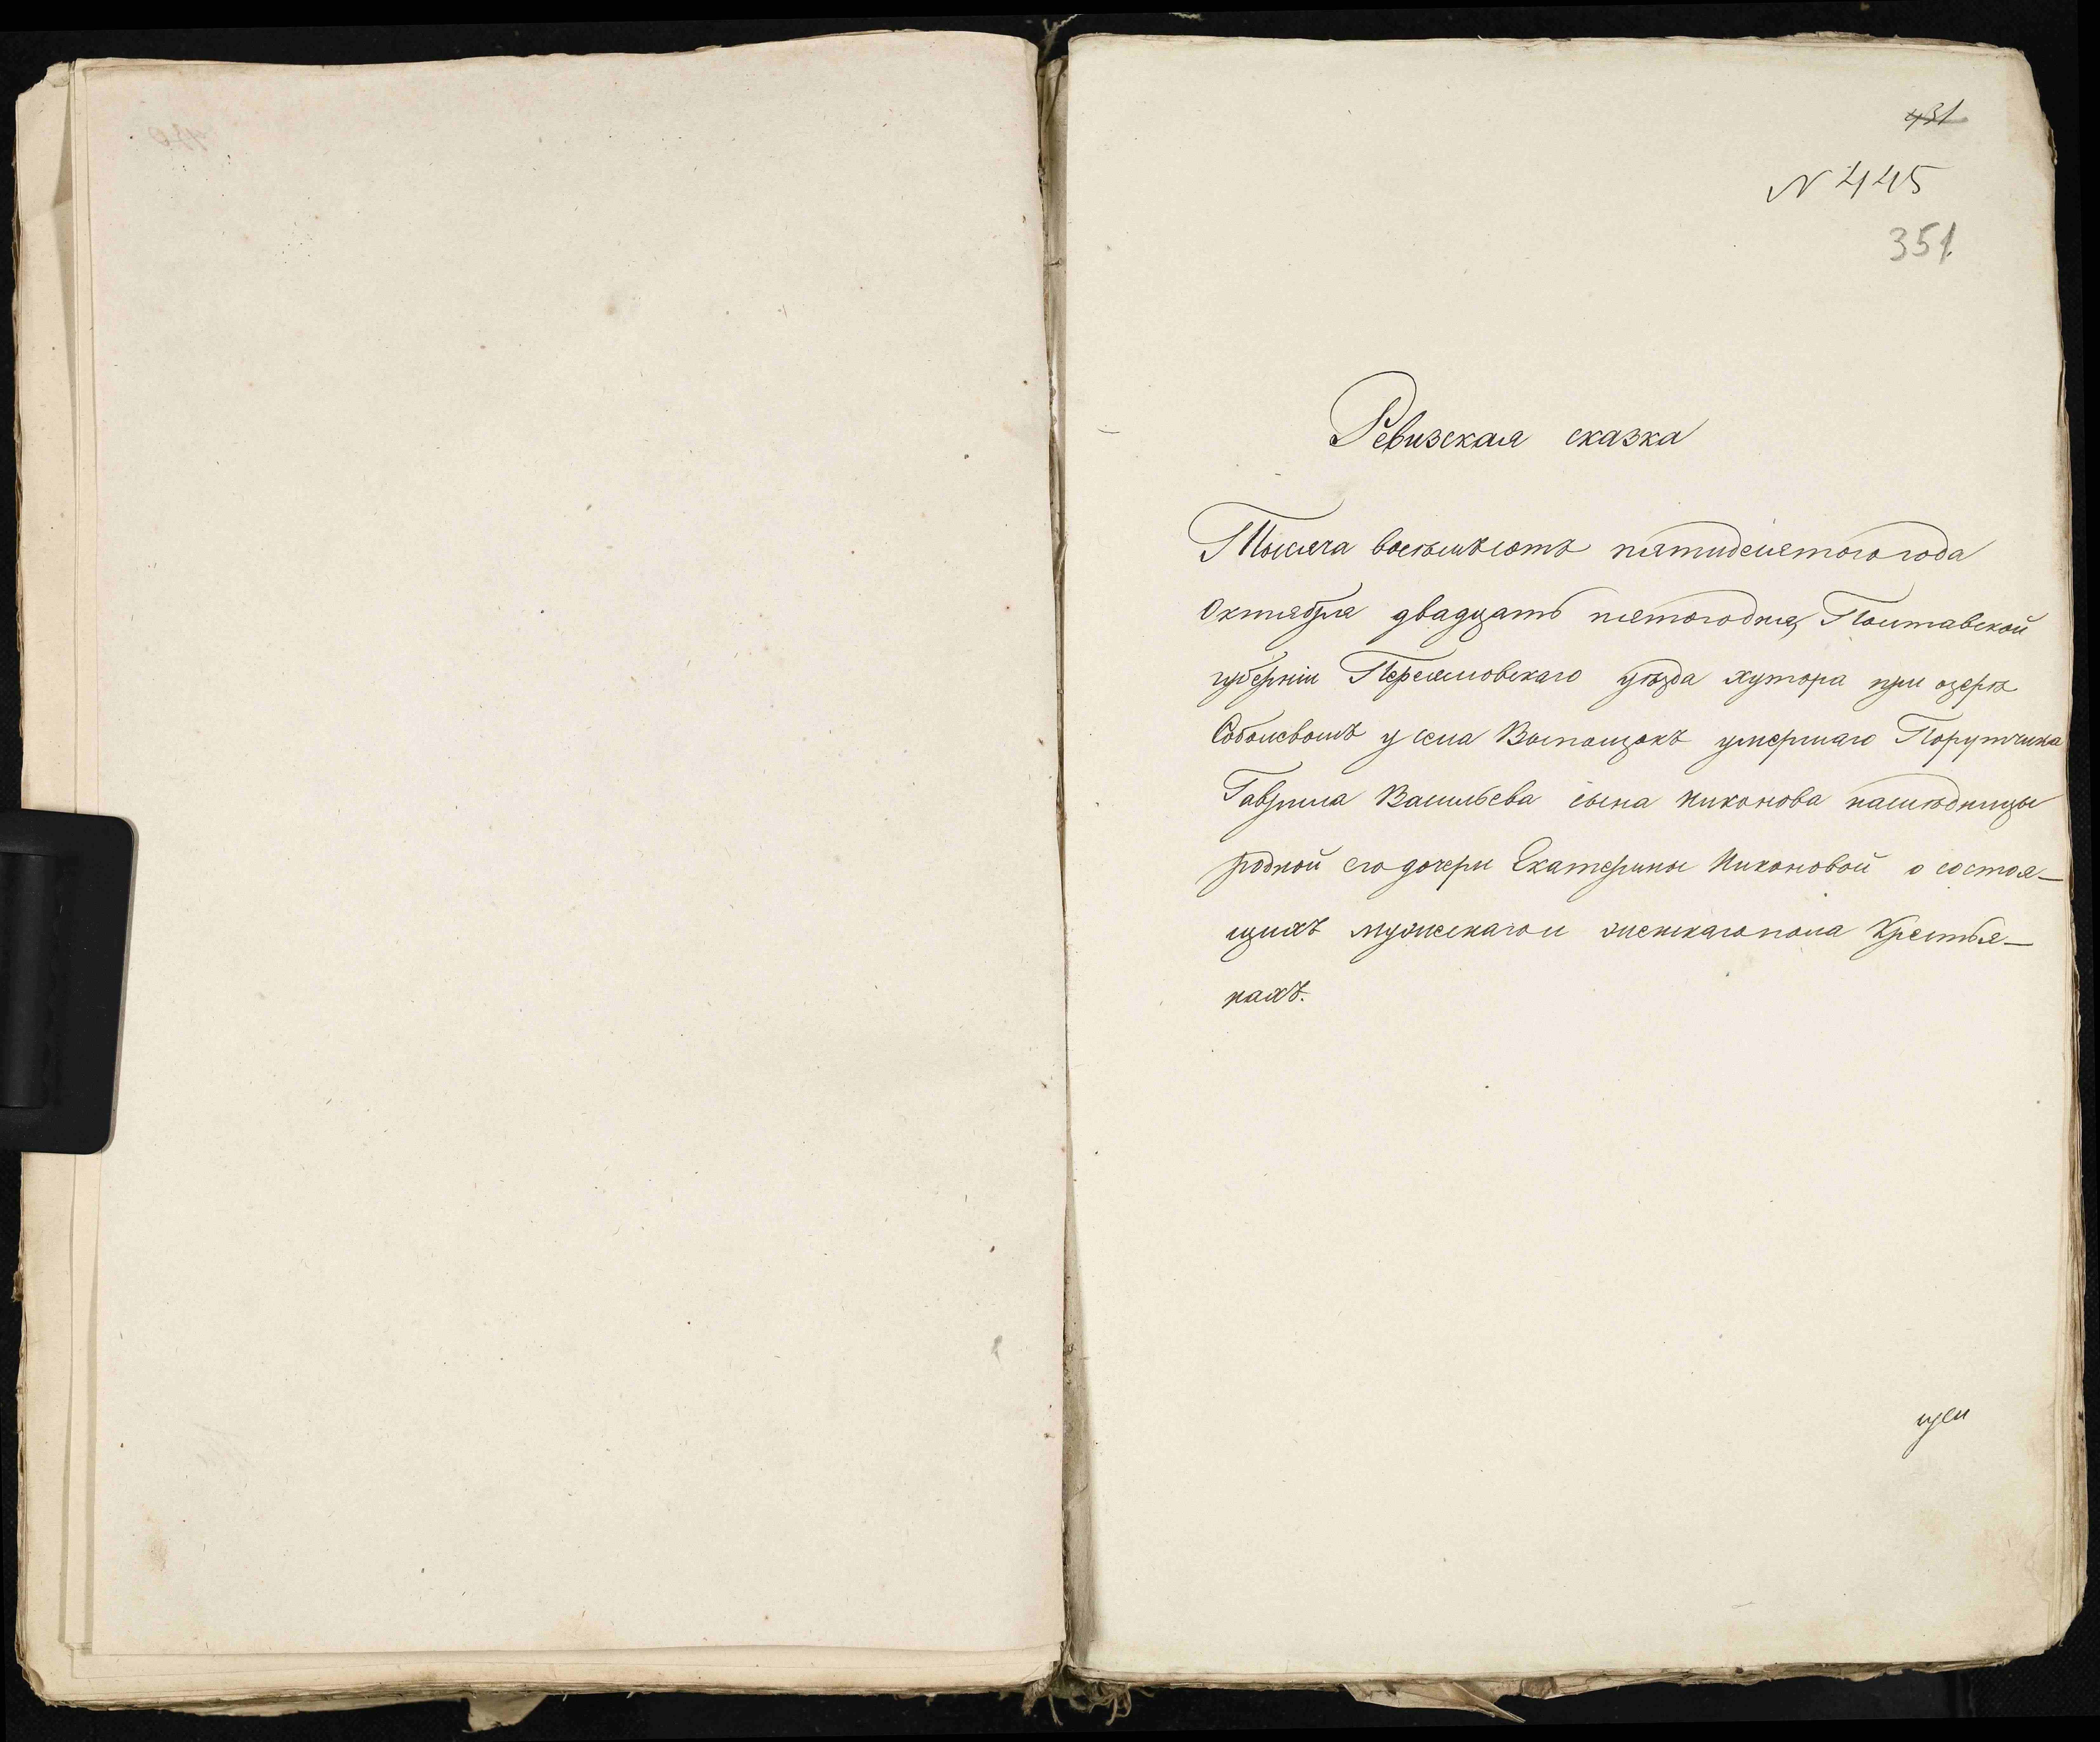 431
N 445
351
Ревизская сказка
Тысяча восемьсотъ пятидесятого года
Октября двадцать пятого дня, Полтавской
губерніи Переяславскаго уѣзда хутора при озерѣ
у села умершаго Порутчика
Гаврила Васильева сына Никонова наслѣдницы
родной его дочери Екатерины Никоновой о состоя-
щихъ мужескаго и женскаго пола Крестья-
нахъ.